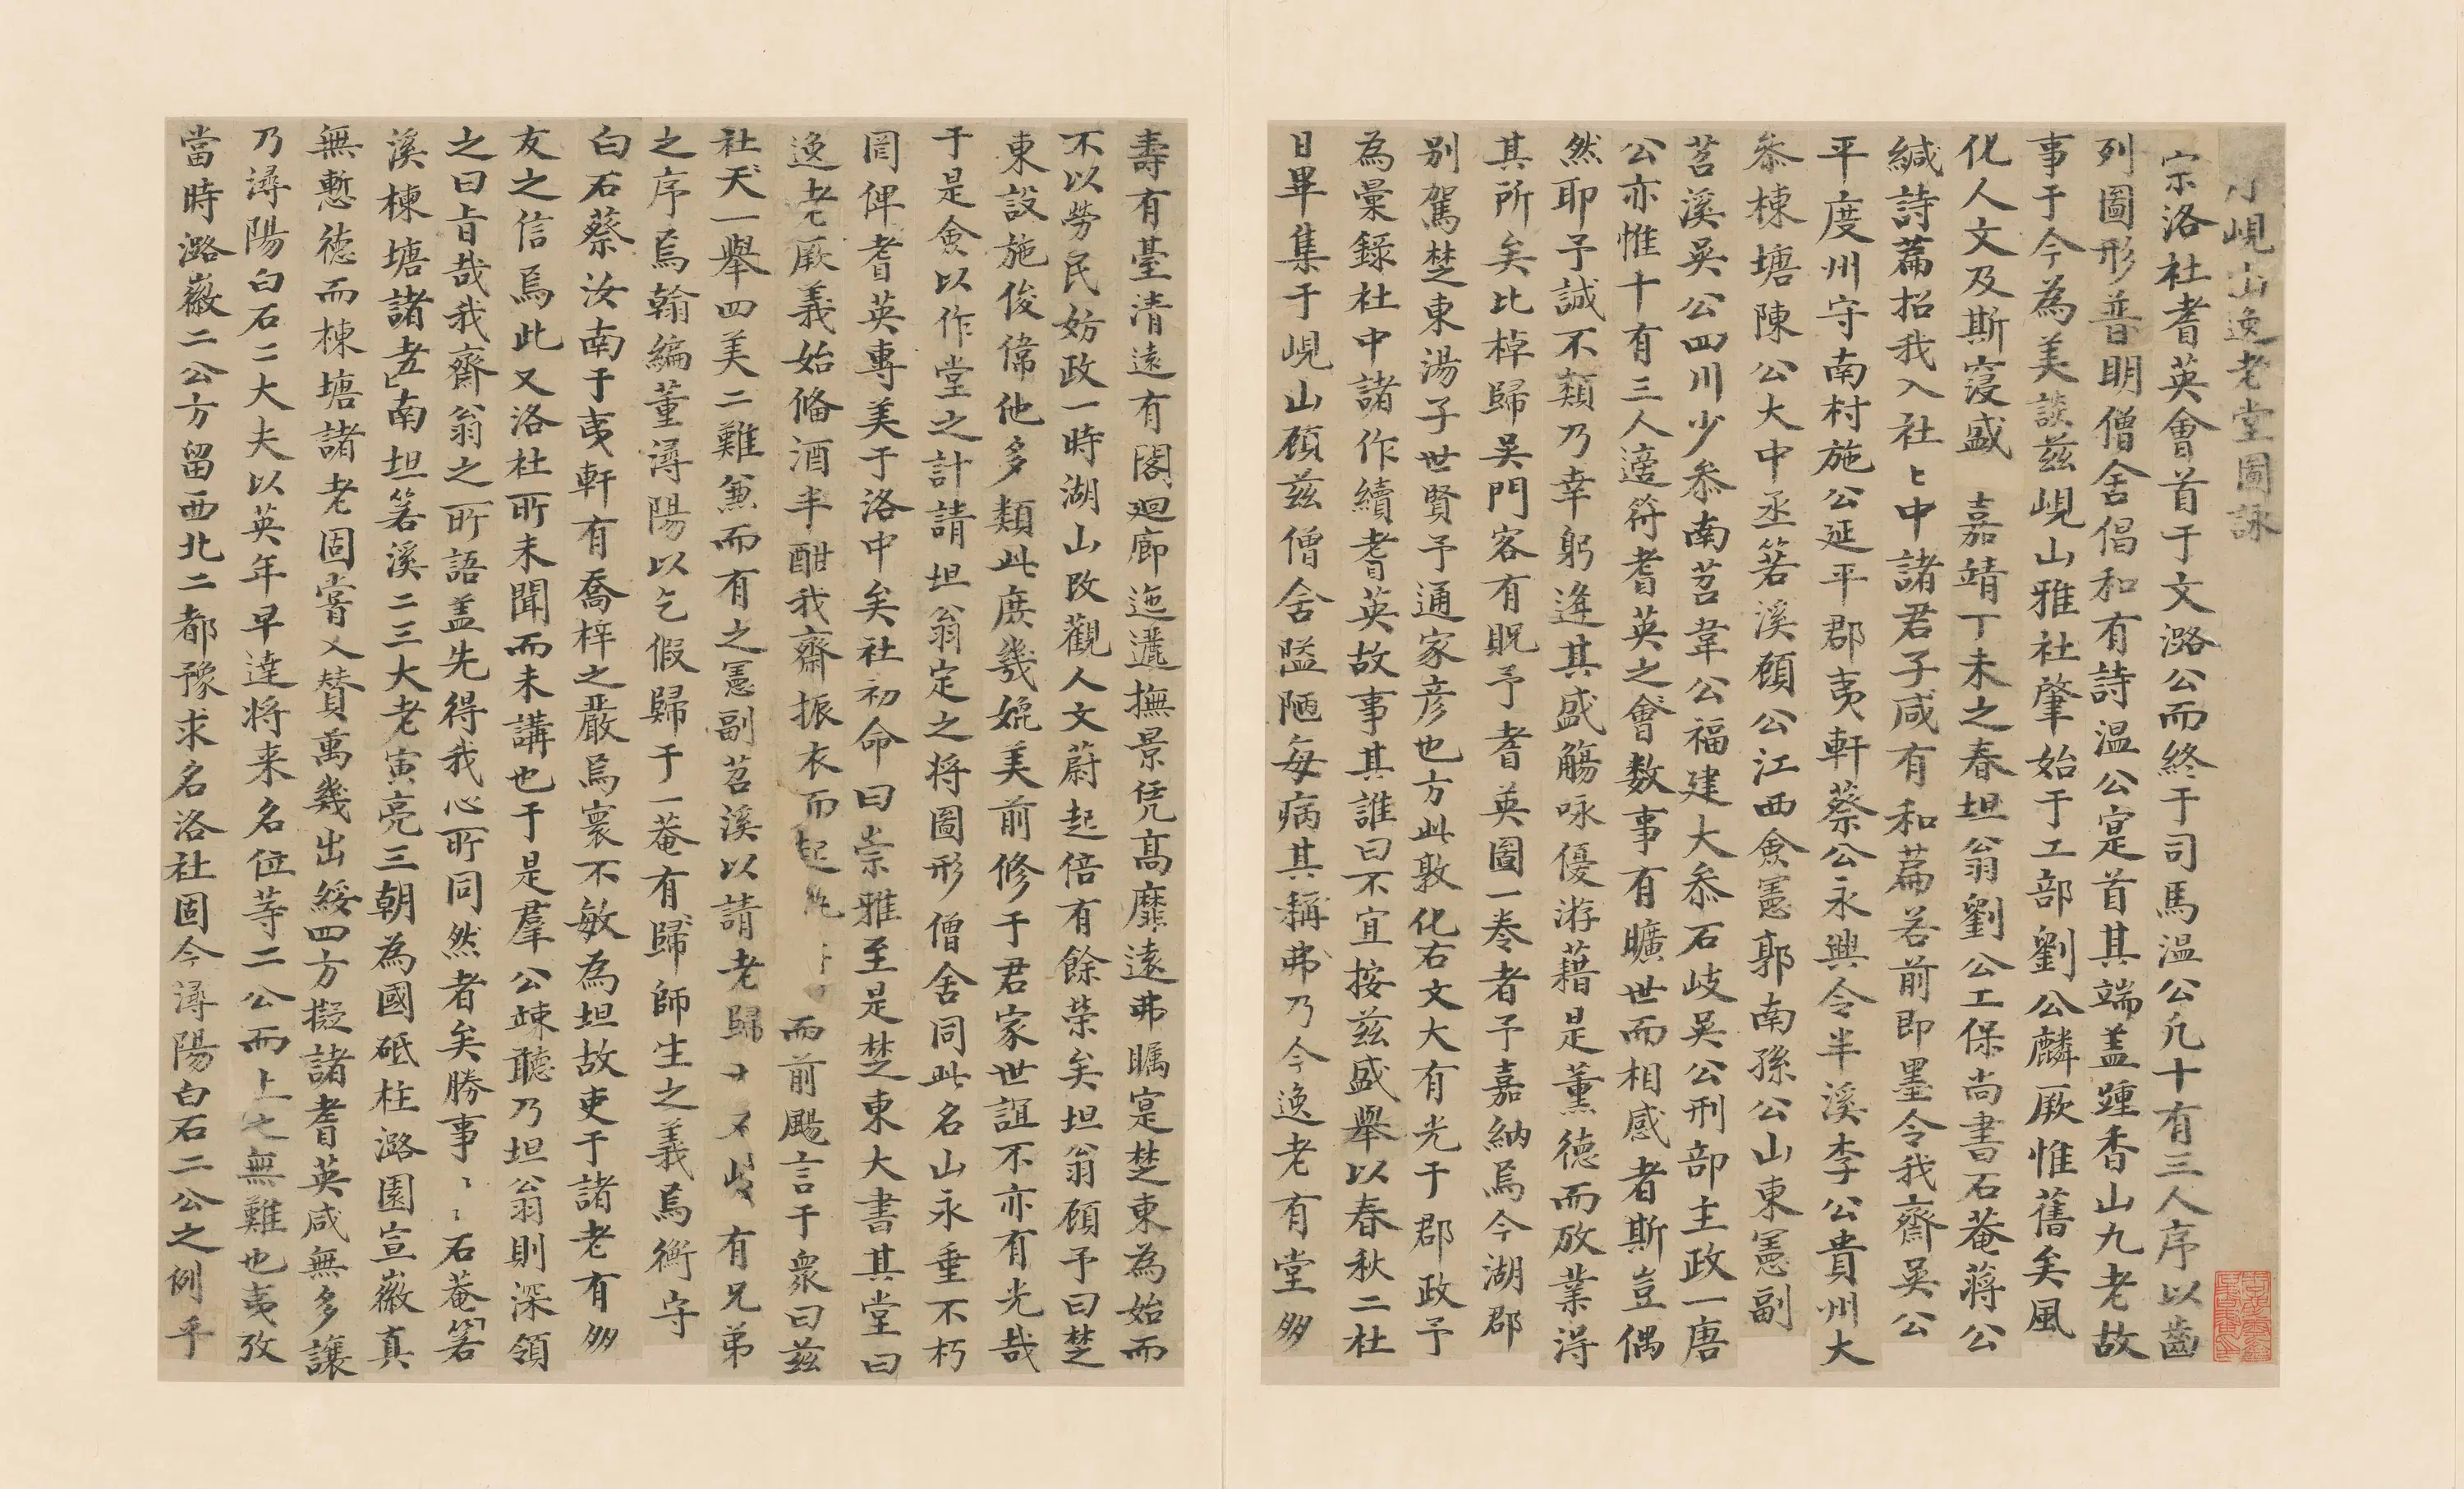 峴山逸老堂圖詠
宗洛社耆英會首于文潞公而終于司馬温公凢十有三人序以齒
列圖形普明僧舍倡和有詩温公寔首其端盖踵香山九老故
事于今為美談兹峴山雅社肇始于工部劉公麟厥惟舊矣風
化人文及斯寖盛　嘉靖丁未之春坦翁劉公工保尚書石菴蔣公
緘詩篇招我入社〻中諸君子咸有和篇若前即墨令我齋吳公
平度州守南村施公延平郡夷軒蔡公永興令半溪李公貴州大
叅棟塘陳公大中丞箬溪顧公江西僉憲郭南孫公山東憲副
苕溪吳公四川少叅南苕韋公福建大叅石岐吳公刑部主政一唐
公亦惟十有三人適符耆英之會数事有曠世而相感者斯豈偶
然耶予誠不類乃幸躬逢其盛觴咏優游藉是薰德而放業淂
其所矣比棹歸吳門客有貺予耆英圖一卷者予嘉納焉今湖郡
别駕楚東湯子世賢予通家彦也方此敦化右文大有光于郡政予
為彚錄社中諸作續耆英故事其誰曰不宜按兹盛舉以春秋二社
日畢集于峴山顧兹僧舍隘陋每病其稱弗乃今逸老有堂多
壽有臺清遠有閣廻廊迤邐撫景凭髙靡遠弗矚寔楚東為始而
不以勞民妨政一時湖山改觀人文蔚起倍有餘榮矣坦翁顧予曰楚
東設施俊偉他多類此庶幾媲美前修于君家世誼不亦有光哉
于是僉以作堂之計請坦翁定之将圖形僧舍同此名山永垂不朽
罔俾耆英專美于洛中矣社初命曰崇雅至是楚東大書其堂曰
逸老厥義始俻酒半酣我齋振衣而起而前颺言于衆曰兹
社天一舉四美二難兼而有之憲副苕溪以請老歸有兄弟
之序焉翰編董潯陽以乞假歸于一菴有歸師生之義焉衡守
白石蔡汝南于夷軒有喬梓之嚴焉寰不敏為坦故吏于諸老有多
友之信焉此又洛社所未聞而未講也于是羣公竦聽乃坦翁則深領
之曰旨哉我齋翁之所語盖先得我心所同然者矣勝事〻〻石菴箬
溪棟塘諸老南坦箬溪二三大老寅亮三朝為國砥柱潞園宣徽真
無慙德而棟塘諸老固嘗乂賛萬幾出綏四方擬諸耆英咸無多讓
乃潯陽白石二大夫以英年早逹将来名位等二公而上之無難也夷攷
當時潞徽二公方留西北二都豫求名洛社固今潯陽白石二公之例乎